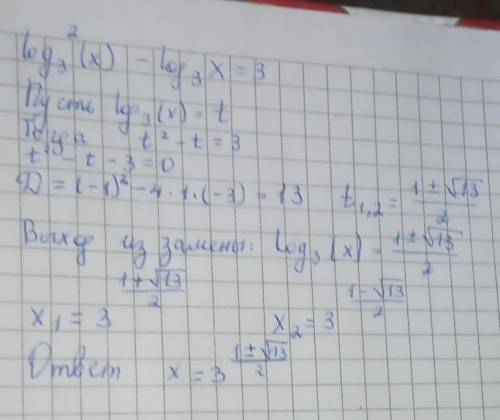 log₃²(x) - log₃ x = 3
Пусть log₃(x) = t
Тогда t² - t = 3
t² - t - 3 = 0
D = (-1)² - 4 · 1 · (-3) = 13 t₁,₂ = (1 ± √13)/2
Выход из замены: log₃(x) = (1 ± √13)/2
x₁ = 3^((1 + √13)/2) x₂ = 3^((1 - √13)/2)
Ответ x = 3^((1 ± √13)/2)